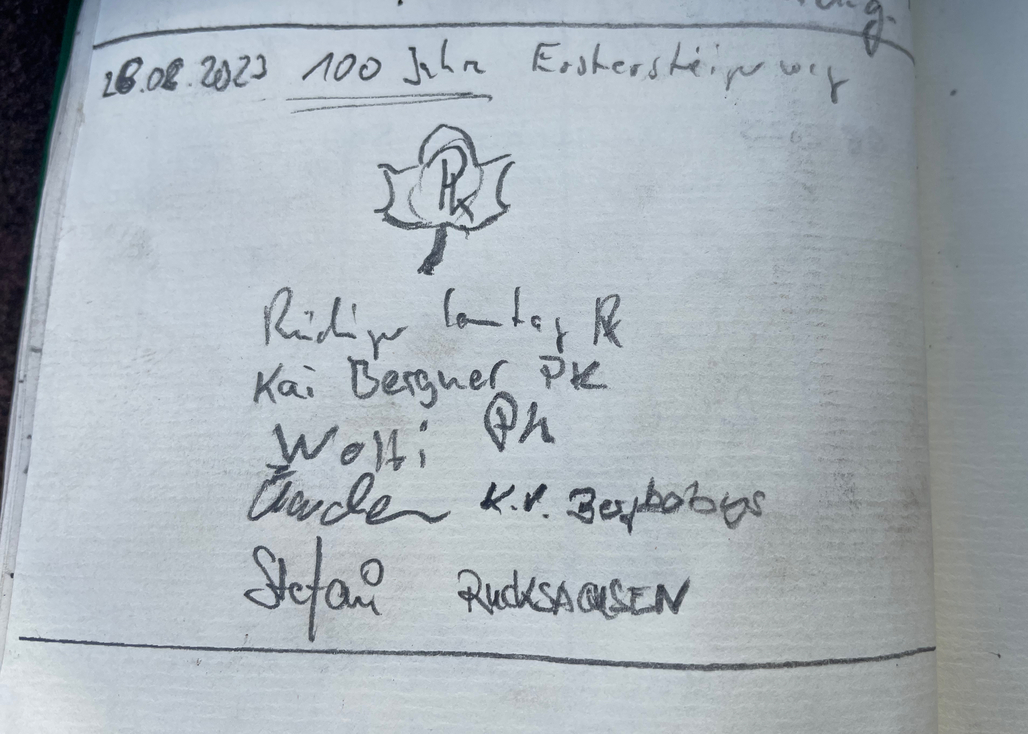 28.08.2023 100 Jahre Ersthersteiger weg
Rüdiger PK
Kai Bergner PK
Wolfi PK
K.V. Bergbobys
Stefan RUCKSACHSEN